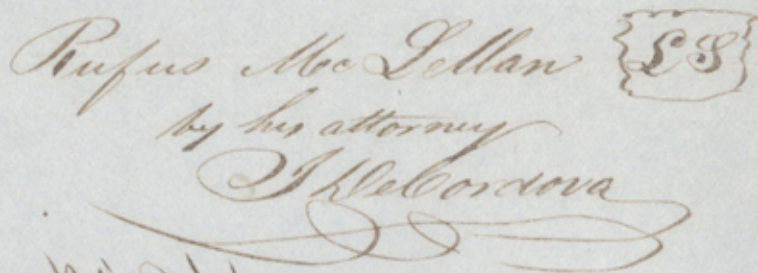 Rufus McLellan LS
by his attorney
J DeCordova